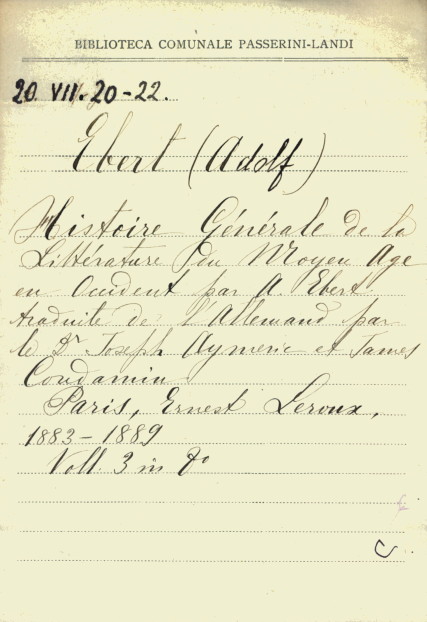 BIBLIOTECA COMUNALE PASSERINI-LANDI
20. VII. 20-22.
Ebert (Adolf)
Histoire Générale de la
Littérature du Moyen Age
en Occident par A. Ebert
traduite de l'Allemand par
le Dr Joseph Aymeric et James
Condamin
Paris, Ernest Leroux,
1883-1889
Voll. 3 in 8º
C